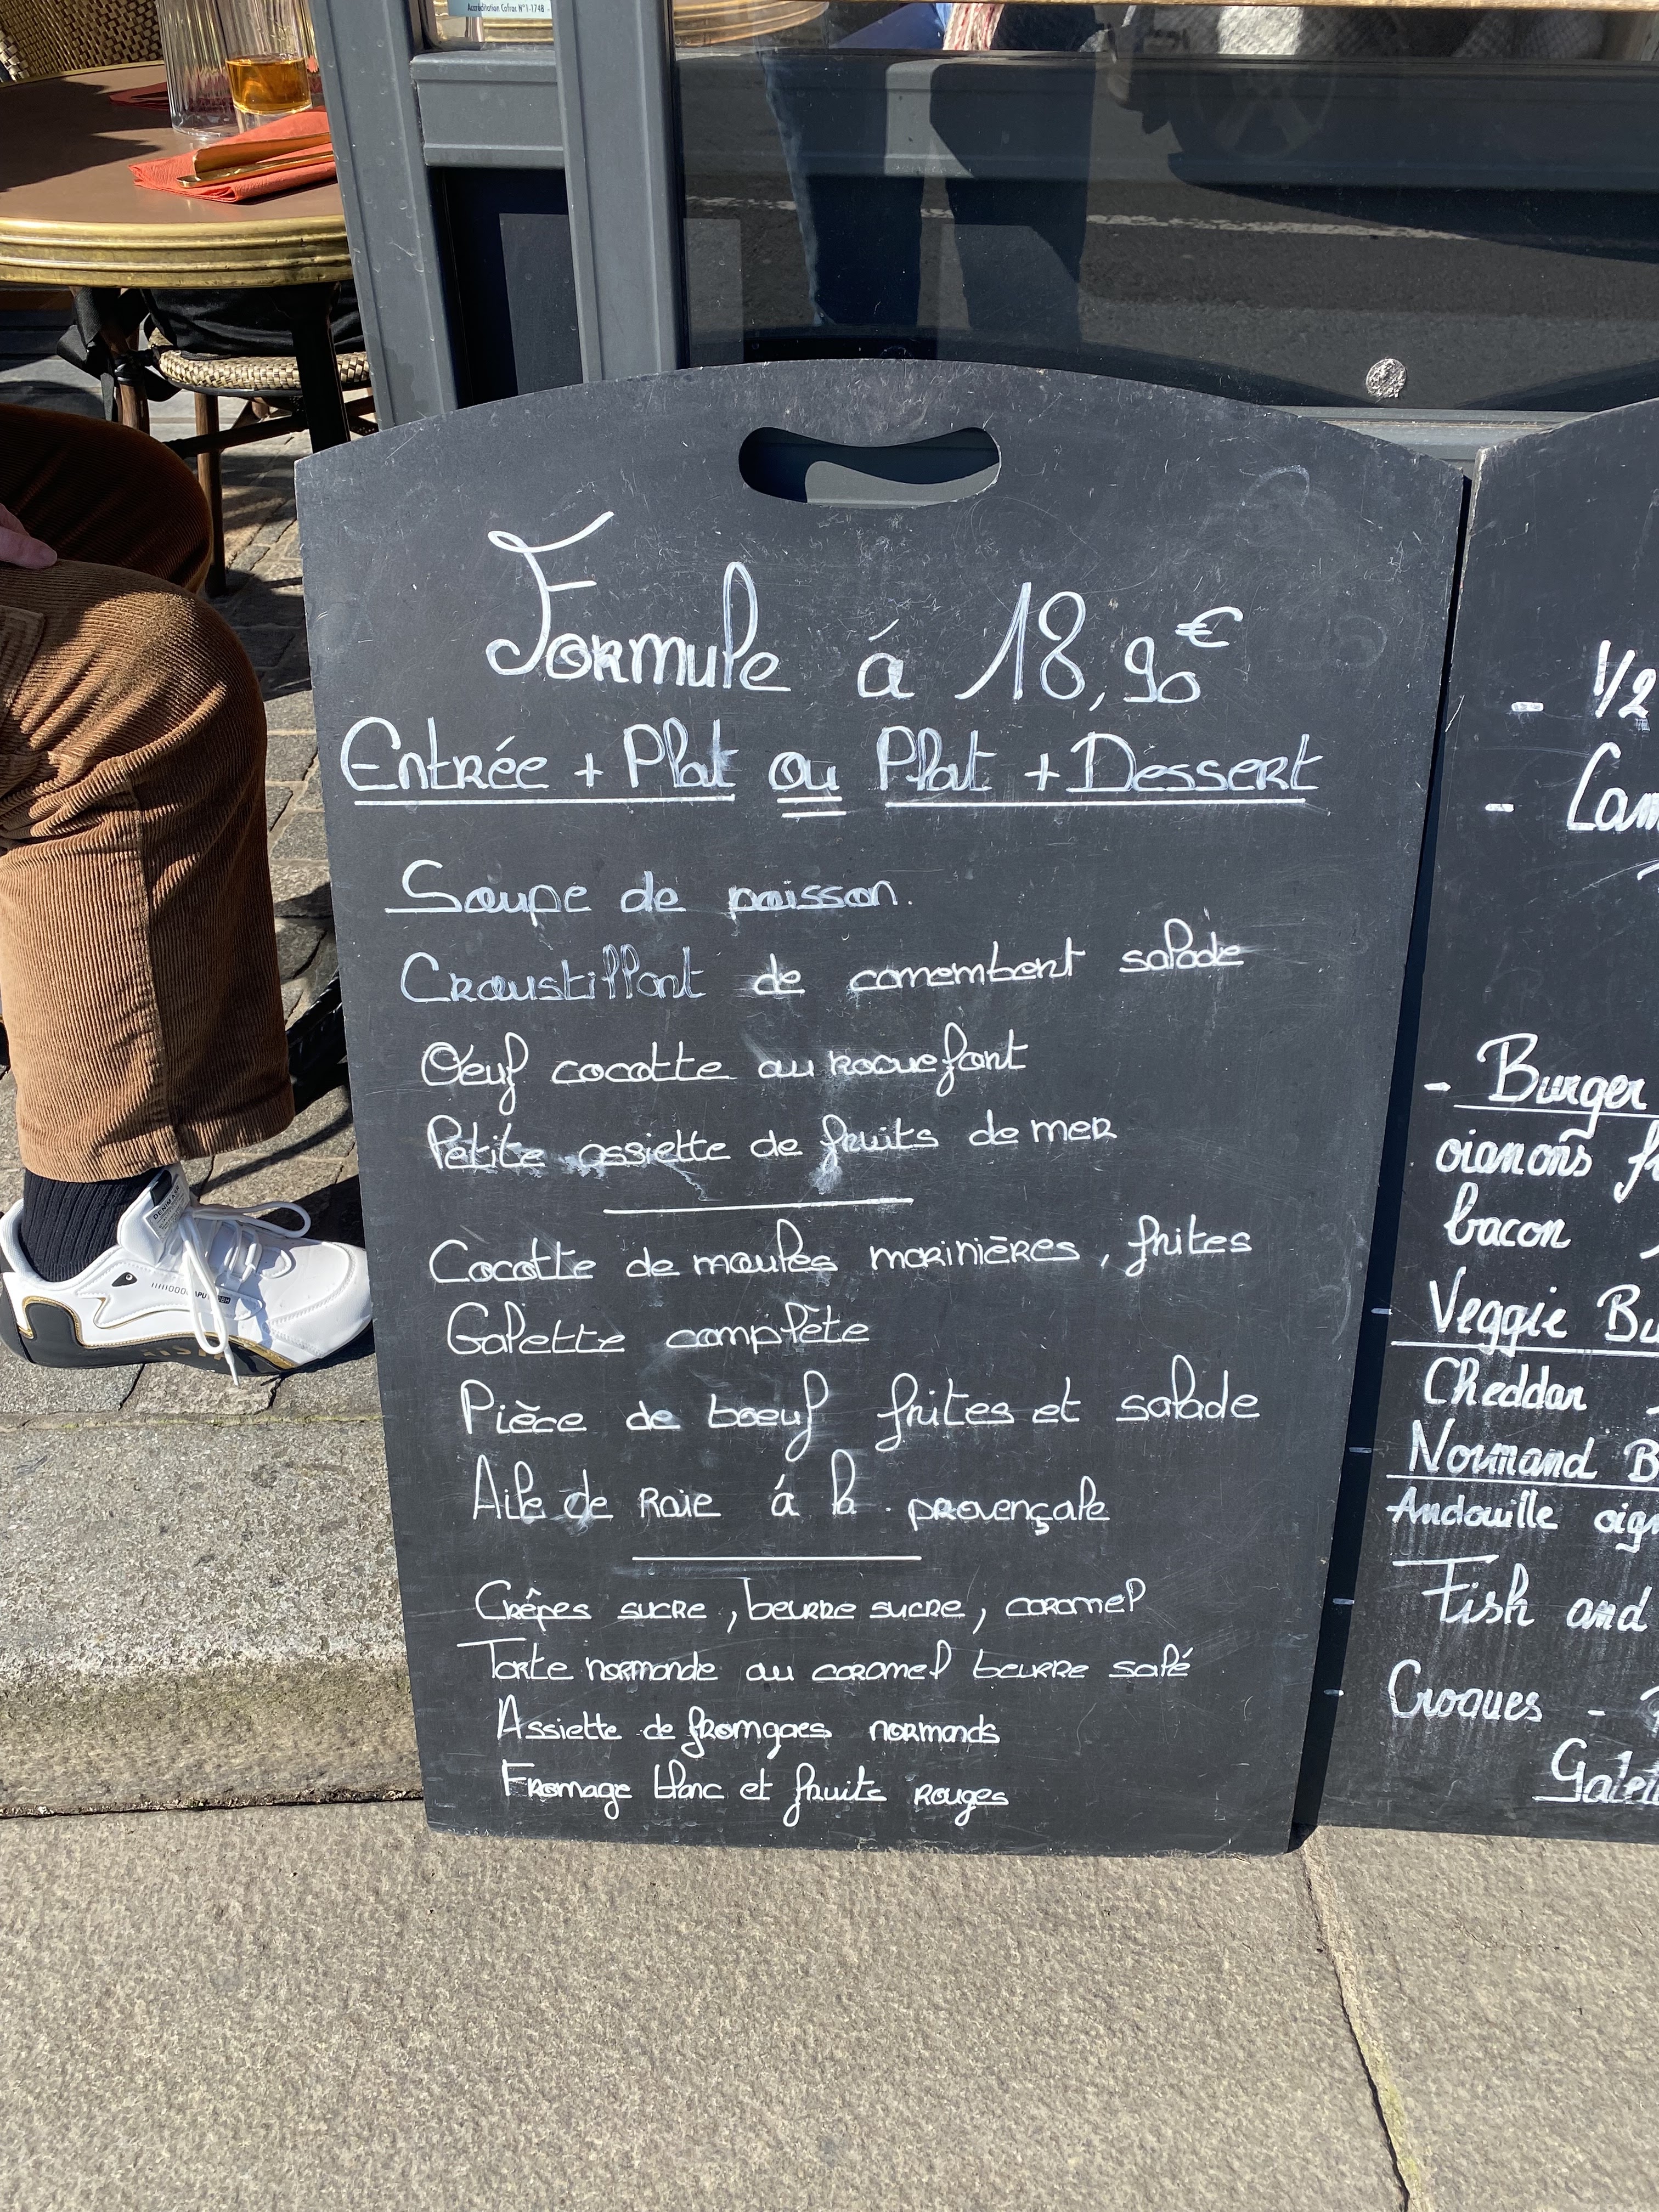 Accréditation Cofrac N°1-1748 -
Formule á 18,90€
Entrée + Plat ou Plat + Dessert
Soupe de poisson.
Croustillant de camembert salade
Œuf cocotte au roquefort
Petite assiette de fruits de mer
Cocotte de moules marinières, frites
Galette complète
Pièce de boeuf frites et salade
Aile de Raie á la provençale
Crêpes sucre, beurre sucre, caramel
Tarte normande au caramel beurre salé
Assiette de fromgaes normands
Fromage blanc et fruits rouges
- 1/2
- Cam
- Burger
oignons
bacon
- Veggie Bu
Cheddar
- Normand B
Andouille oign
- Fish and
- Croques -
Galet